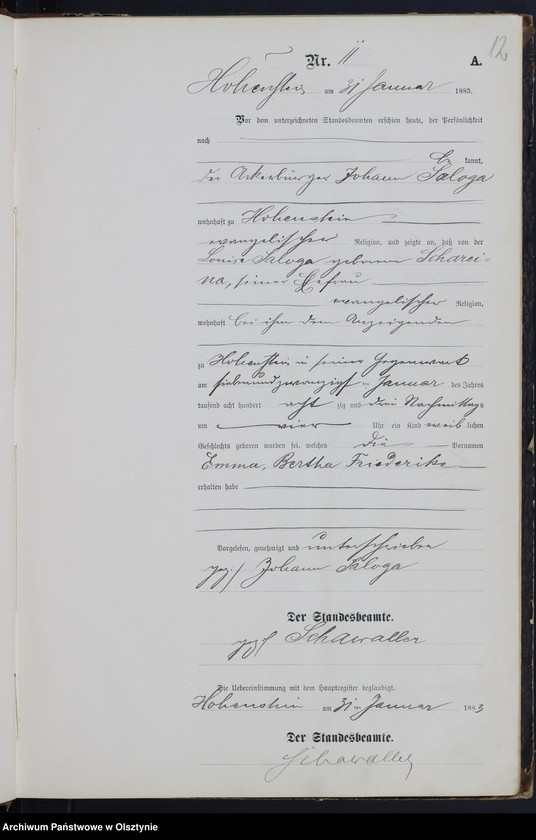 12
Nr. 11 A.
Hohenstein am 31 Januar 1883.
Vor dem unterzeichneten Standesbeamten erschien heute, der Persönlichkeit
nach
be kannt,
der Ackerbürger Johann Saloga
wohnhaft zu Hohenstein
evangelischer Religion, und zeigte an, daß von der
Louise Saloga geborenen Scharei-
na, seiner Ehefrau
evangelischer Religion,
wohnhaft bei ihm dem Anzeigenden
zu Hohenstein in seiner Gegenwart
am siebenundzwanzigsten Januar des Jahres
tausend acht hundert acht zig und drei Nachmittags
um vier Uhr ein Kind weib lichen
Geschlechts geboren worden sei, welches die Vornamen
Emma, Bertha Friederike
erhalten habe
Vorgelesen, genehmigt und unterschrieben
gez:/ Johann Saloga
Der Standesbeamte.
gez/ Schawaller
Die Uebereinstimmung mit dem Hauptregister beglaubigt.
Hohenstein am 31 ten Januar 1883
Der Standesbeamte.
Schawaller
Archiwum Państwowe w Olsztynie